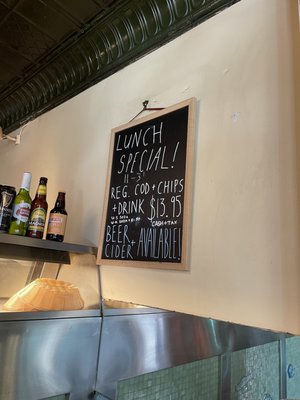 LUNCH
SPECIAL!
11-3
REG. COD + CHIPS
+ DRINK $13.95
CASH + TAX
BEER +
CIDER AVAILABLE!